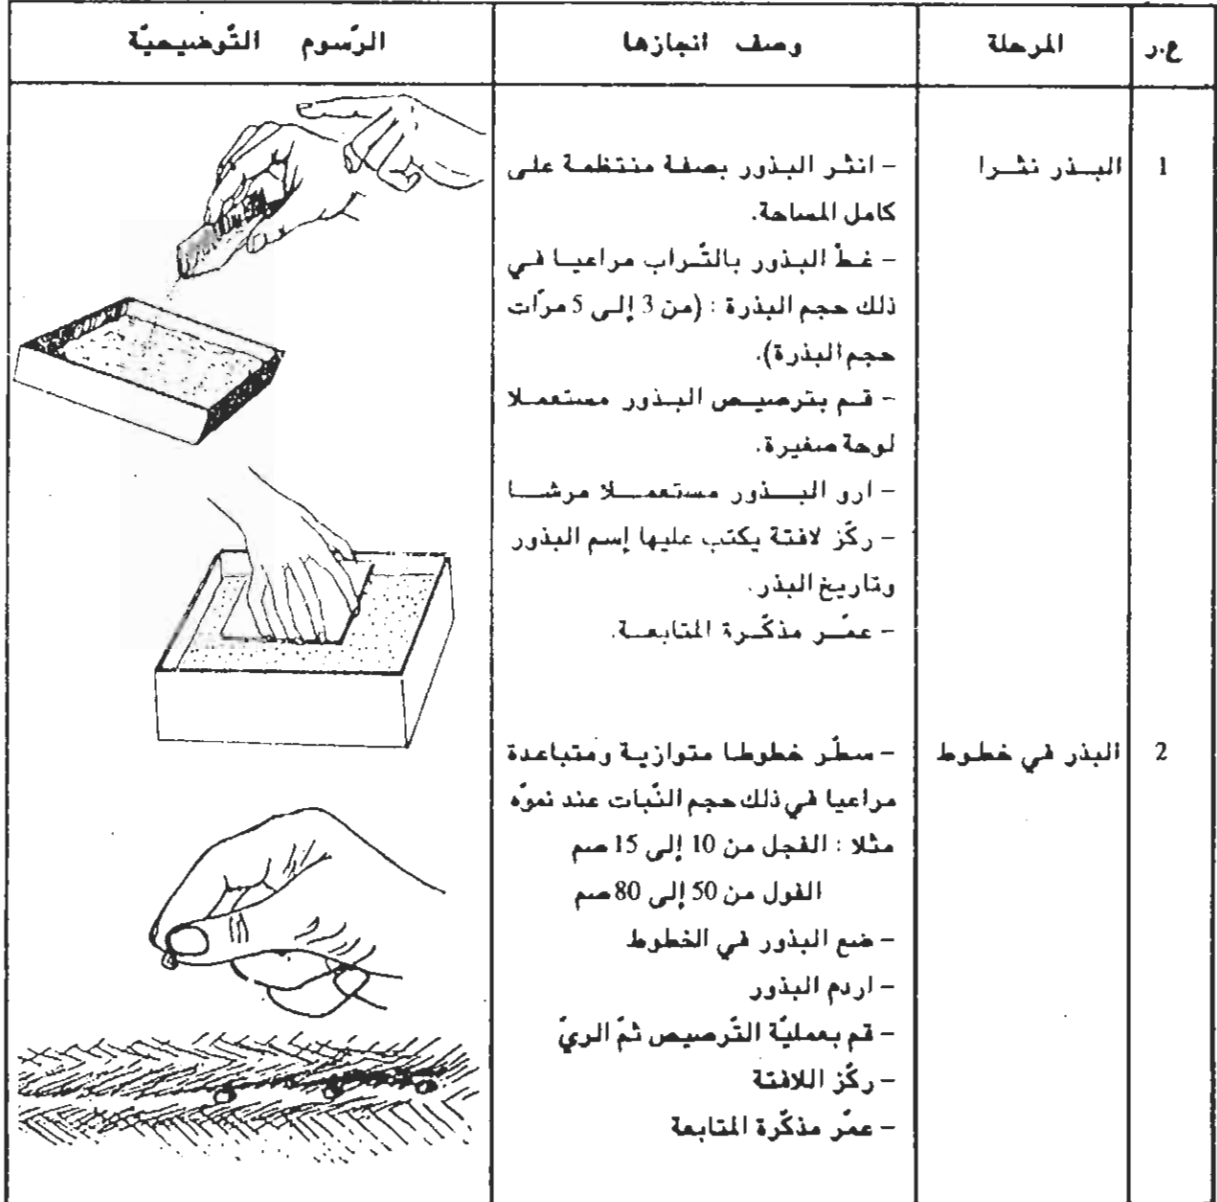 ع.ر المرحلة وصف انجازها الرّسوم التّوضيحيّة
1 البـــذر نثـــرا
- انثر البذور بصفة منتظمة على
كامل المساحة.
- غطّ البذور بالتّراب مراعيا في
ذلك حجم البذرة : (من 3 إلى 5 مرّات
حجم البذرة).
- قم بترصيص البذور مستعملا
لوحة صغيرة.
- ارو البذور مستعملا مرشا
- ركّز لافتة يكتب عليها إسم البذور
وتاريخ البذر.
- عمّر مذكّرة المتابعة.
2 البذر في خطوط
- سطّر خطوطا متوازية ومتباعدة
مراعيا في ذلك حجم النّبات عند نموّه
مثلا : الفجل من 10 إلى 15 صم
الفول من 50 إلى 80 صم
- ضع البذور في الخطوط
- اردم البذور
- قم بعمليّة التّرصيص ثمّ الريّ
- ركّز اللافتة
- عمّر مذكّرة المتابعة